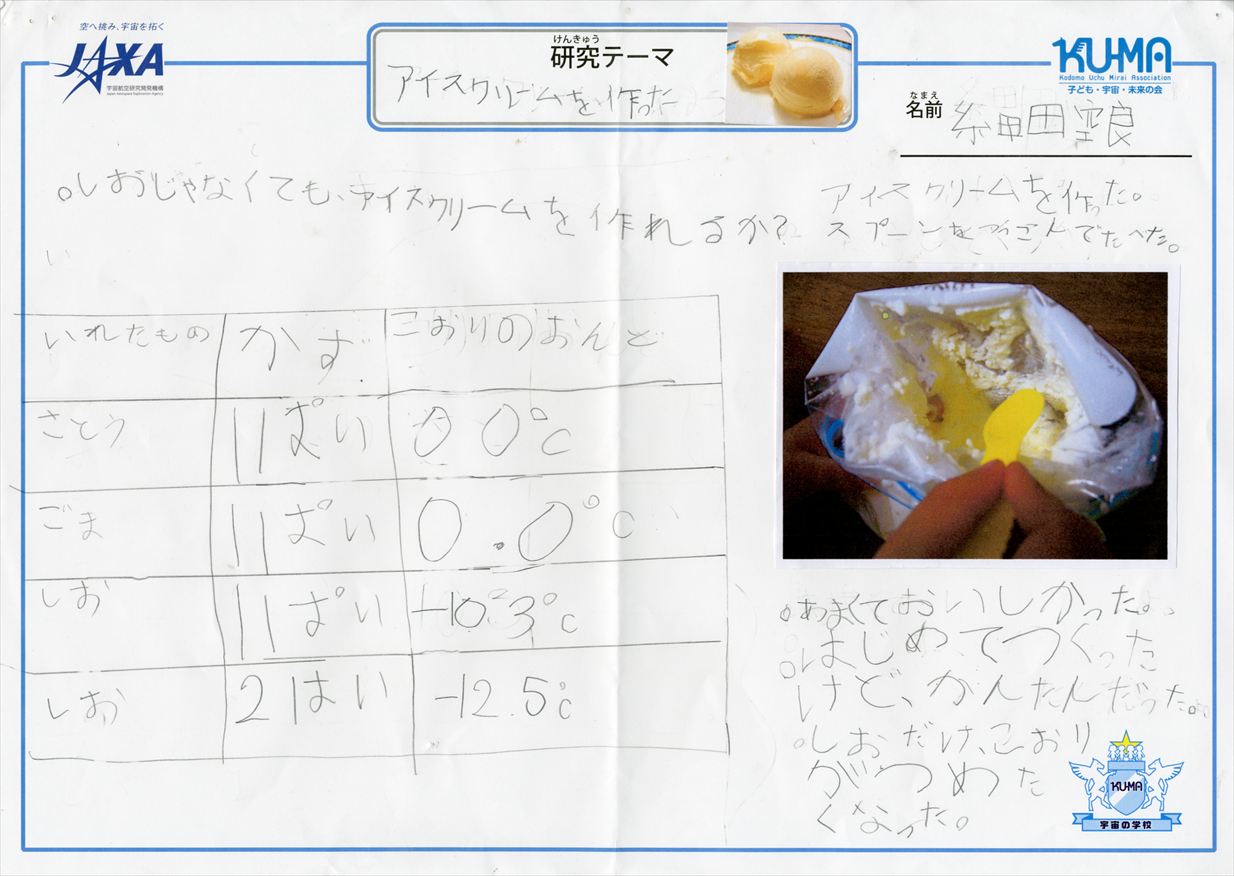 空へ挑み、宇宙を拓く
JAXA
宇宙航空研究開発機構
Japan Aerospace Exploration Agency
けんきゅう
研究テーマ
アイスクリームを作った
KU-MA
Kodomo Uchu Mirai Association
子ども・宇宙・未来の会
なまえ
名前
細田空良
。しおじゃなくても、アイスクリームを作れるか?
アイスクリームを作った。
スプーンをつっこんでたべた。
いれたもの かず こおりのおんど
さとう 11ぱい 0 0℃
ごま 11ぱい 0.0℃
しお 11ぱい -10 3℃
しお 21はい -12.5℃
。あまくておいしかった。
。はじめてつくった
けど、かんたんだった。
。しおだけ、こおり
がつめた
くなった。
KU-MA
宇宙の学校